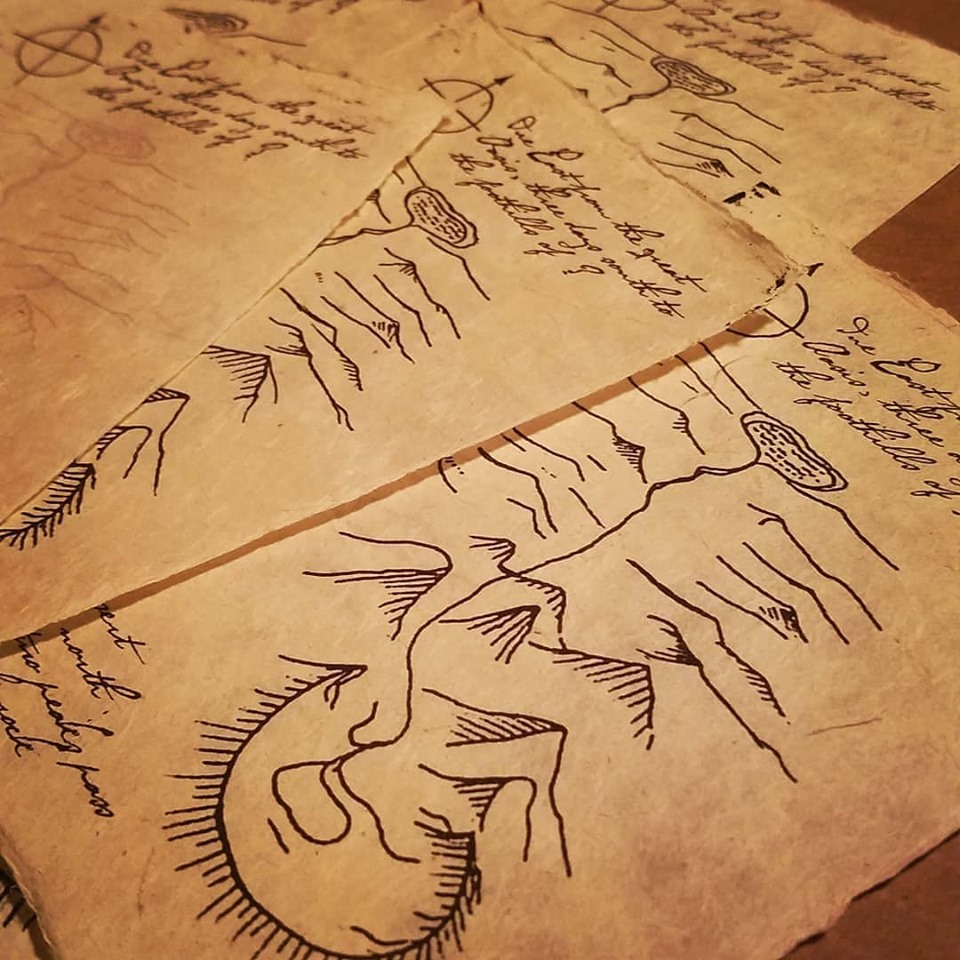 Due East from the great
Oasis, three days south to
the foothills of ?
Due East from the great
Oasis, three days south to
the foothills of ?
Due East from the great
Oasis, three days south to
the foothills of ?
Due East
Oasis, three
the foothills of
north,
two peaks, pass